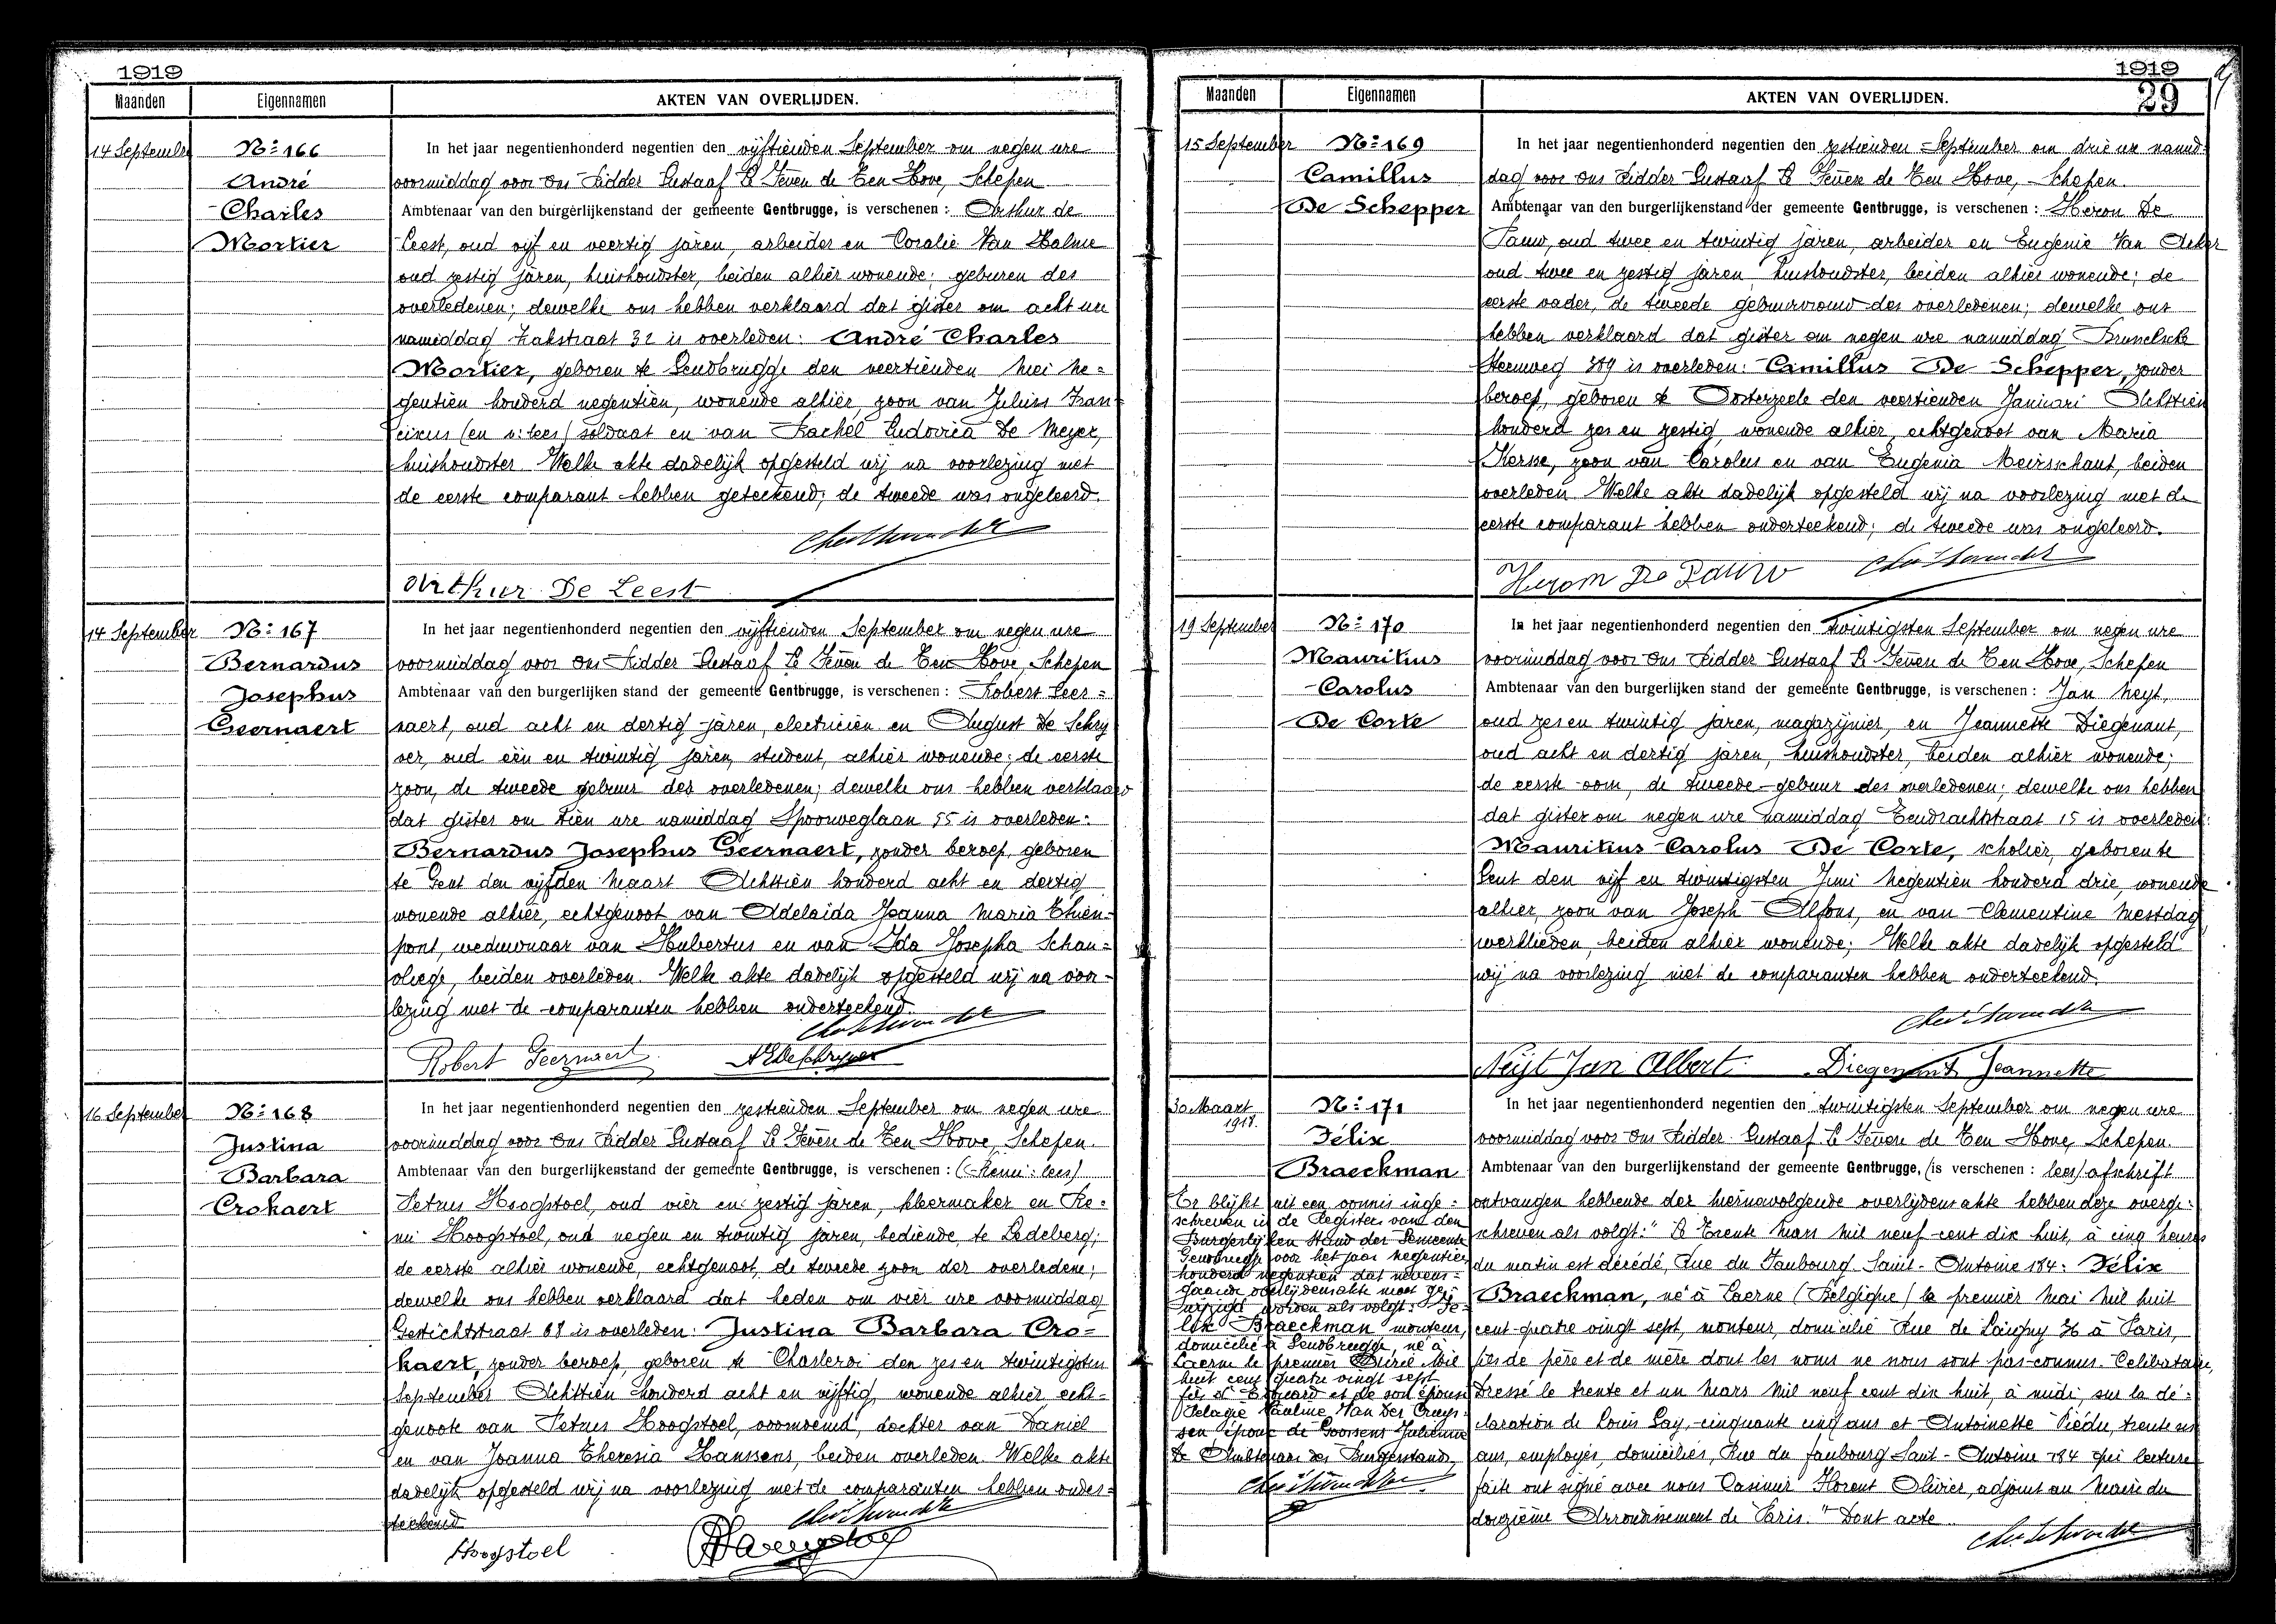 1919
Maanden Eigennamen AKTEN VAN OVERLIJDEN.
14 September
Nº 166
André
Charles
Mortier
In het jaar negentienhonderd negentien den vijftienden September om negen ure
voormiddag voor Ons Ridder Gustaaf de Ten Hove, Schepen
Ambtenaar van den burgerlijkenstand der gemeente Gentbrugge, is verschenen : Arthur de
Leest, oud vijf en veertig jaren, arbeider en Coralie Van Halme
oud zestig jaren, huishoudster, beiden alhier wonende; geburen des
overledenen; dewelke ons hebben verklaard dat gister om acht ure
namiddag Zakstraat 32 is overleden: André Charles
Mortier, geboren te Gendbrugge den veertienden Mei ne=
gentien honderd negentien, wonende alhier, zoon van Julius Fran
ciscus soldaat en van Rachel Ludovica De Meyer,
huishoudster Welke akte dadelijk opgesteld wij na voorlezing met
de eerste comparant hebben geteekend; de tweede was ongeleerd.
Arthur De Leest
14 September
Nº 167
Bernardus
Josephus
Geernaert
In het jaar negentienhonderd negentien den vijftienden September om negen ure
voormiddag voor Ons Ridder Gustaaf de Ten Hove, Schepen
Ambtenaar van den burgerlijken stand der gemeente Gentbrugge, is verschenen : Robert Geer=
naert, oud acht en dertig jaren, electricien en August De Schry
ver, oud één en twintig jaren, student, alhier wonende; de eerste
zoon, de tweede gebuur des overledenen; dewelke ons hebben verklaard
dat gister om tien ure namiddag Spoorweglaan 55 is overleden:
Bernardus Josephus Geernaert, zonder beroep, geboren
te Gent den vijfden Maart Achttien honderd acht en dertig
wonende alhier, echtgenoot van Adelaida Joanna Maria Thien-
pont, weduwnaar van Hubertus en van Ida Josepha Schau=
vliege, beiden overleden. Welke akte dadelijk opgesteld wij na voor-
lezing met de comparanten hebben onderteekend.
Robert Geernaert
16 September
Nº 168
Justina
Barbara
Crokaert
In het jaar negentienhonderd negentien den zestienden September om negen ure
voormiddag voor Ons Ridder Gustaaf de Ten Hove, Schepen.
Ambtenaar van den burgerlijkenstand der gemeente Gentbrugge, is verschenen : (Remi: lees)
Petrus Hoogstoel, oud vier en zestig jaren, kleermaker en Re=
mi Hoogstoel, oud negen en twintig jaren, bediende te Ledeberg;
de eerste alhier wonende, echtgenoot, de tweede zoon der overledene;
dewelke ons hebben verklaard dat heden om vier ure voormiddag
Gestichtstraat 68 is overleden: Justina Barbara Cro=
kaert, zonder beroep, geboren te Charleroi den zes en twintigsten
September Achttien honderd acht en vijftig, wonende alhier echt=
genoote van Petrus Hoogstoel, voornoemd, dochter van Daniel
en van Joanna Theresia Hanssens, beiden overleden. Welke akte
dadelijk opgesteld wij na voorlezing met de comparanten hebben onder=
teekend
Hoogstoel
1919
29
Maanden Eigennamen AKTEN VAN OVERLIJDEN.
15 September
Nº 169
Camillus
De Schepper
In het jaar negentienhonderd negentien den zestienden September om drie ure namid=
dag voor Ons Ridder Gustaaf de Ten Hove, Schepen.
Ambtenaar van den burgerlijkenstand der gemeente Gentbrugge, is verschenen : Heron De
Pauw, oud twee en twintig jaren, arbeider en Eugenie Van Acker
oud twee en zestig jaren huishoudster, beiden alhier wonende; de
eerste vader, de tweede gebuurvrouw des overledenen; dewelke ons
hebben verklaard dat gister om negen ure namiddag Brusselsche
Steenweg 389 is overleden: Camillus De Schepper, zonder
beroep, geboren te Oosterzeele den veertienden Januari Achttien
honderd zes en zestig, wonende alhier, echtgenoot van Maria
Kersse, zoon van Carolus en van Eugenia Meirschaut, beiden
overleden Welke akte dadelijk opgesteld wij na voorlezing met de
eerste comparant hebben onderteekend; de tweede was ongeleerd.
Herom De Pauw
19 September
Nº 170
Mauritius
Carolus
De Corte
In het jaar negentienhonderd negentien den twintigsten September om negen ure
voormiddag voor Ons Ridder Gustaaf de Ten Hove, Schepen
Ambtenaar van den burgerlijken stand der gemeente Gentbrugge, is verschenen : Jan Neyt,
oud zes en twintig jaren, magazijnier, en Jeannette Diegenant,
oud acht en dertig jaren, huishoudster, beiden alhier wonende;
de eerste oom, de tweede gebuur des overledenen; dewelke ons hebben
dat gister om negen ure namiddag Eendrachtstraat 15 is overleden:
Mauritius Carolus De Corte, scholier, geboren te
Gent den vijf en twintigsten Juni Negentien honderd drie, wonende
alhier, zoon van Joseph Alfons, en van Clementine Mestdag
werklieden, beiden alhier wonende; Welke akte dadelijk opgesteld
wij na voorlezing met de comparanten hebben onderteekend.
Neijt Jan Albert. Diegenant Jeannette
30 Maart
1918.
Nº 171
Félix
Braeckman
Er blijkt uit een vonnis inge=
schreven in de Registers van den
Burgerlijken Stand der Gemeente
Gendbrugge voor het jaar negentien
honderd negentien dat nevens=
gaande overlijdensakte moet ge=
wijzigd worden als volgt: Fé=
lix Braeckman monteur,
domicilié à Gendbrugge, né à
Laerne le premier Avril Mil
huit cent quatre vingt sept
fils d'Edouard et de son épouse
Pelagie Pauline Van Der Cruys-
sen époux de Goossens Julienne
De Ambtenaar des Burgerstand,
In het jaar negentienhonderd negentien den twintigsten September om negen ure
voormiddag voor Ons Ridder Gustaaf de Ten Hove, Schepen.
Ambtenaar van den burgerlijkenstand der gemeente Gentbrugge, (is verschenen : lees) afschrift
ontvangen hebbende der hiernavolgende overlijdensakte hebben deze overge=
schreven als volgt: " Le Trente Mars mil neuf cent dix huit, à cinq heures
du matin est décédé, Rue du Faubourg Saint-Antoine 184: Félix
Braeckman, né à Laerne (Belgique) le premier Mai Mil huit
cent quatre vingt sept, monteur, domicilié Rue de Lagny 36 à Paris,
fils de père et de mère dont les noms ne nous sont pas connus. Célibataire,
Dressé le trente et un Mars Mil neuf cent dix huit, à midi, sur la dé=
claration de Louis Gay, cinquante cinq ans et Antoinette Piédu, trente six
ans, employés, domiciliés, Rue du Faubourg Saint-Antoine 184 qui lecture
faite ont signé avec nous Casimir Florent Olivier, adjoint au Maire du
douzième Arrondissement de Paris." Dont acte